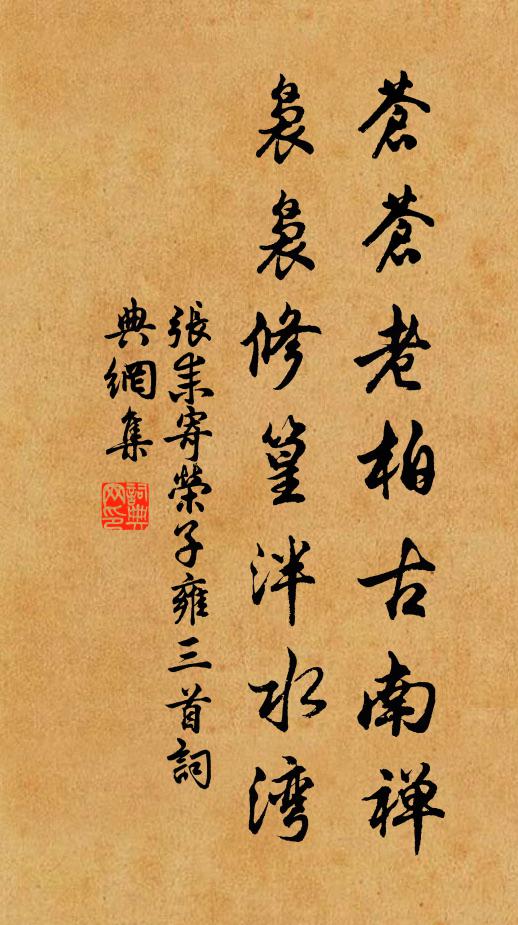 蒼蒼老柏古南禅
裊裊修篁泮水湾
張耒寄榮子雍三首詞
典網集
詞典
网印